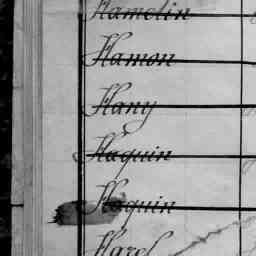 Hamelin
Hamon
Hany
Haquin
Haquin
Harel